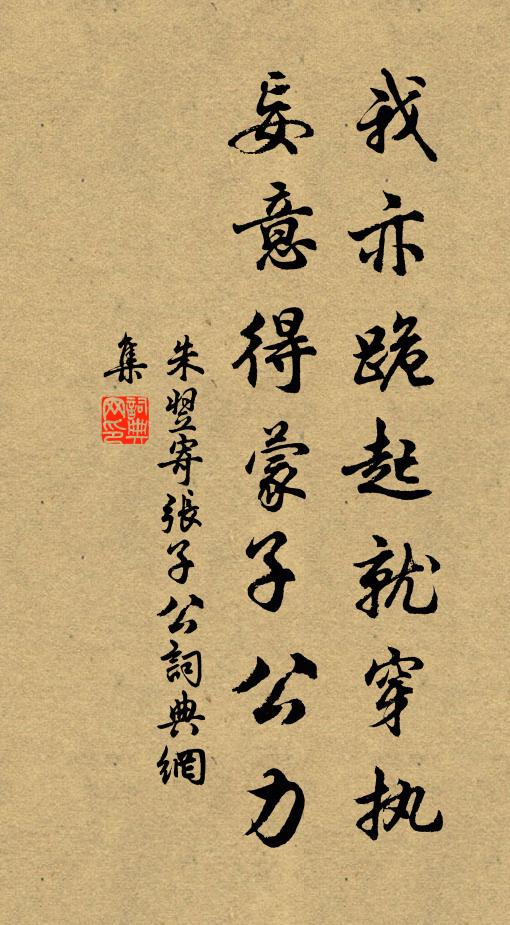 我亦跪起就穿执
妄意得蒙子公力
朱翌寄張子公詞典網
集
詞典網印